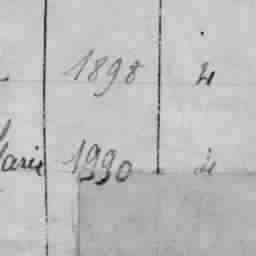 1898 4
Marie 1990 4